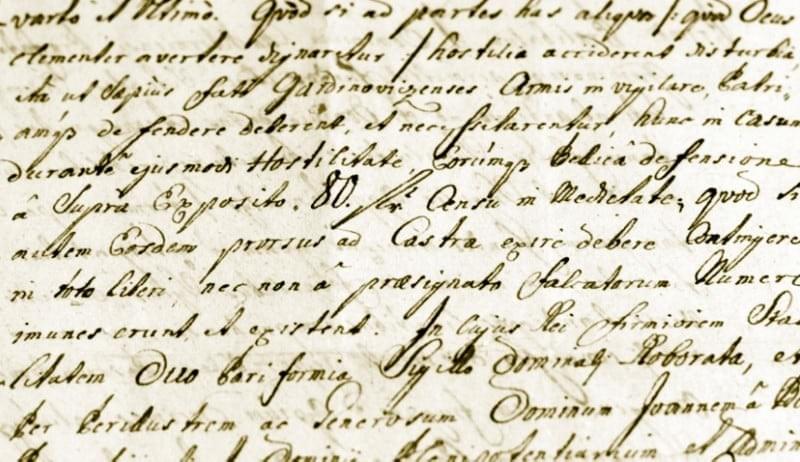 varto et Ultimo. Quod si ad partes has aliqua /: quod Deus
clementer avertere dignaretur :/ hostilia acciderent disturbia,
ita ut Sæpius fatt Gardinovizenses Armis invigilare, Patri,
amq de fendere deberent, et necessitarentur, hunc in Casum
durante ejusmodi Hostilitate, Eorumq Bellica defensione
â Supra Exposito. 80. Censu in Medietate; quod si
autem Eosdem prorsus ad Castra exire debere Contingere
in toto liberi, nec non â præsignato falcatorum Numero
imunes erunt, et existent. In Cujus Rei firmiorem Sta
litatem Duo Pariformia Sigillo Dominali Roborata, et
Per Perillustrem ac Generosum Dominum Joannem â
Dominii Plenipotentiarium et Admin